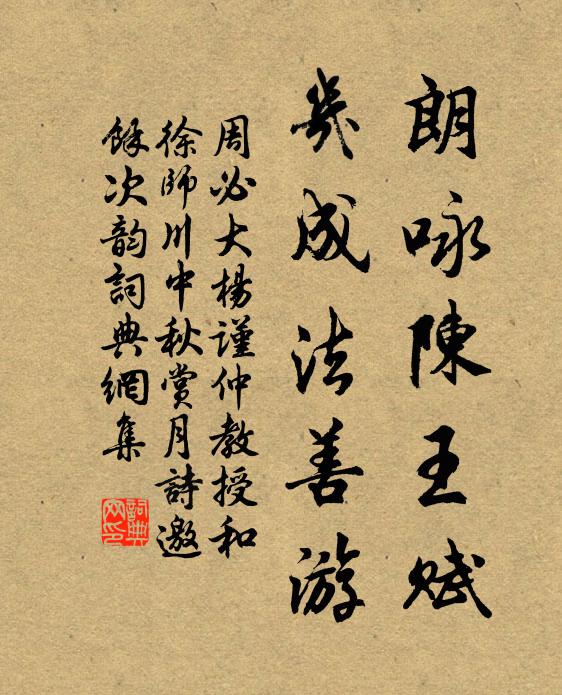 朗咏陳王赋
幾成法善游
周必大楊謹仲教授和
徐師川中秋賞月詩邀
餘次韵詞典網集
詞典
网印